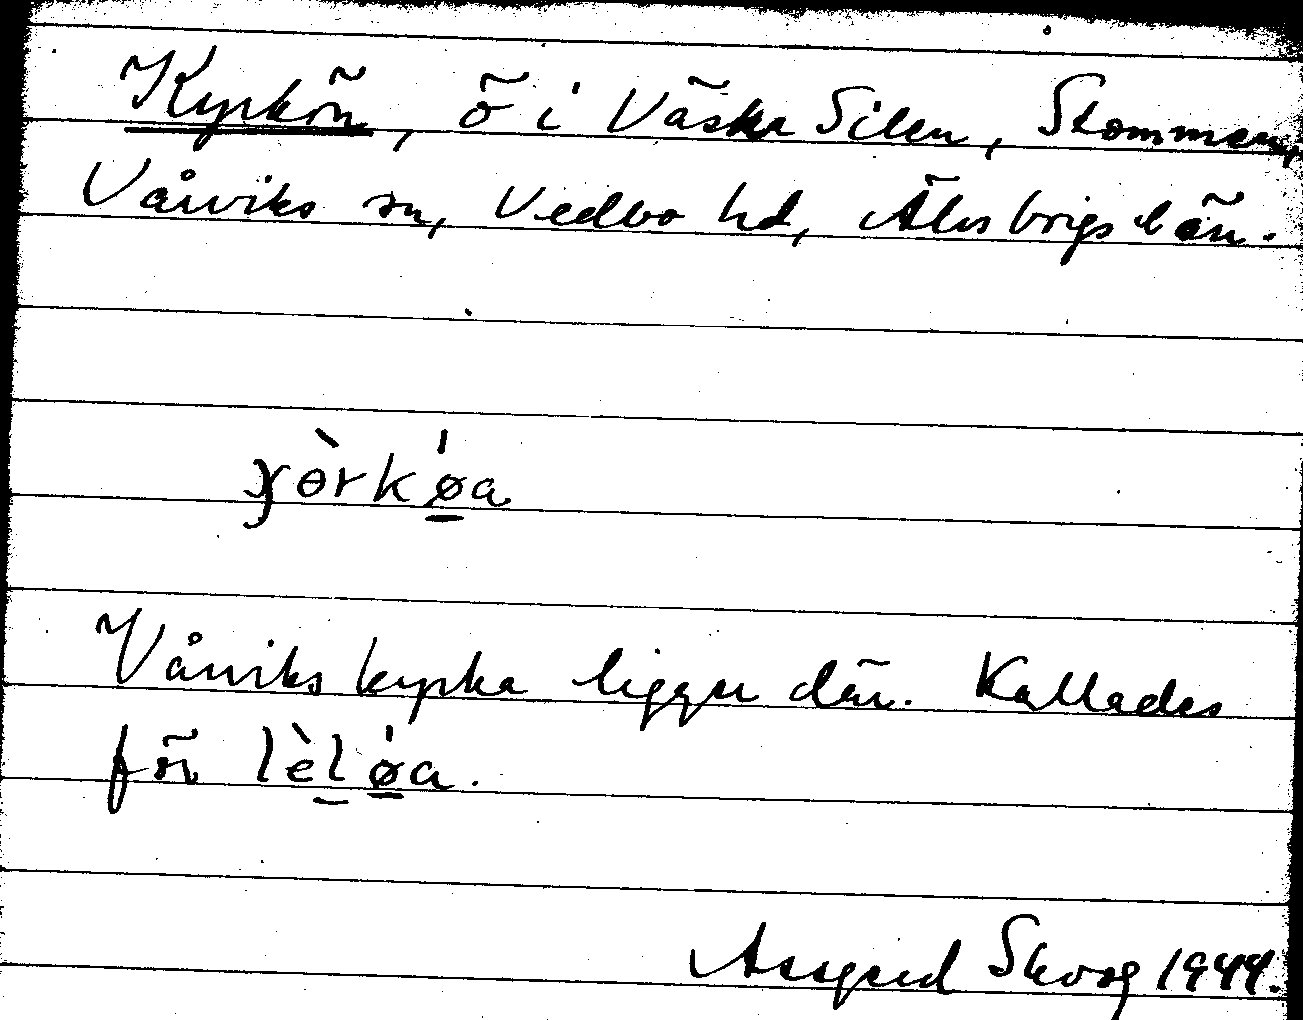 Kyrkön, ö i Västra Silen, Stommen,
Vårviks sn, Vedbo hd, Älvsborgs län.
Vårviks kyrka ligger där. Kallades
för lèløa.
Assgerd Skoog 1944.